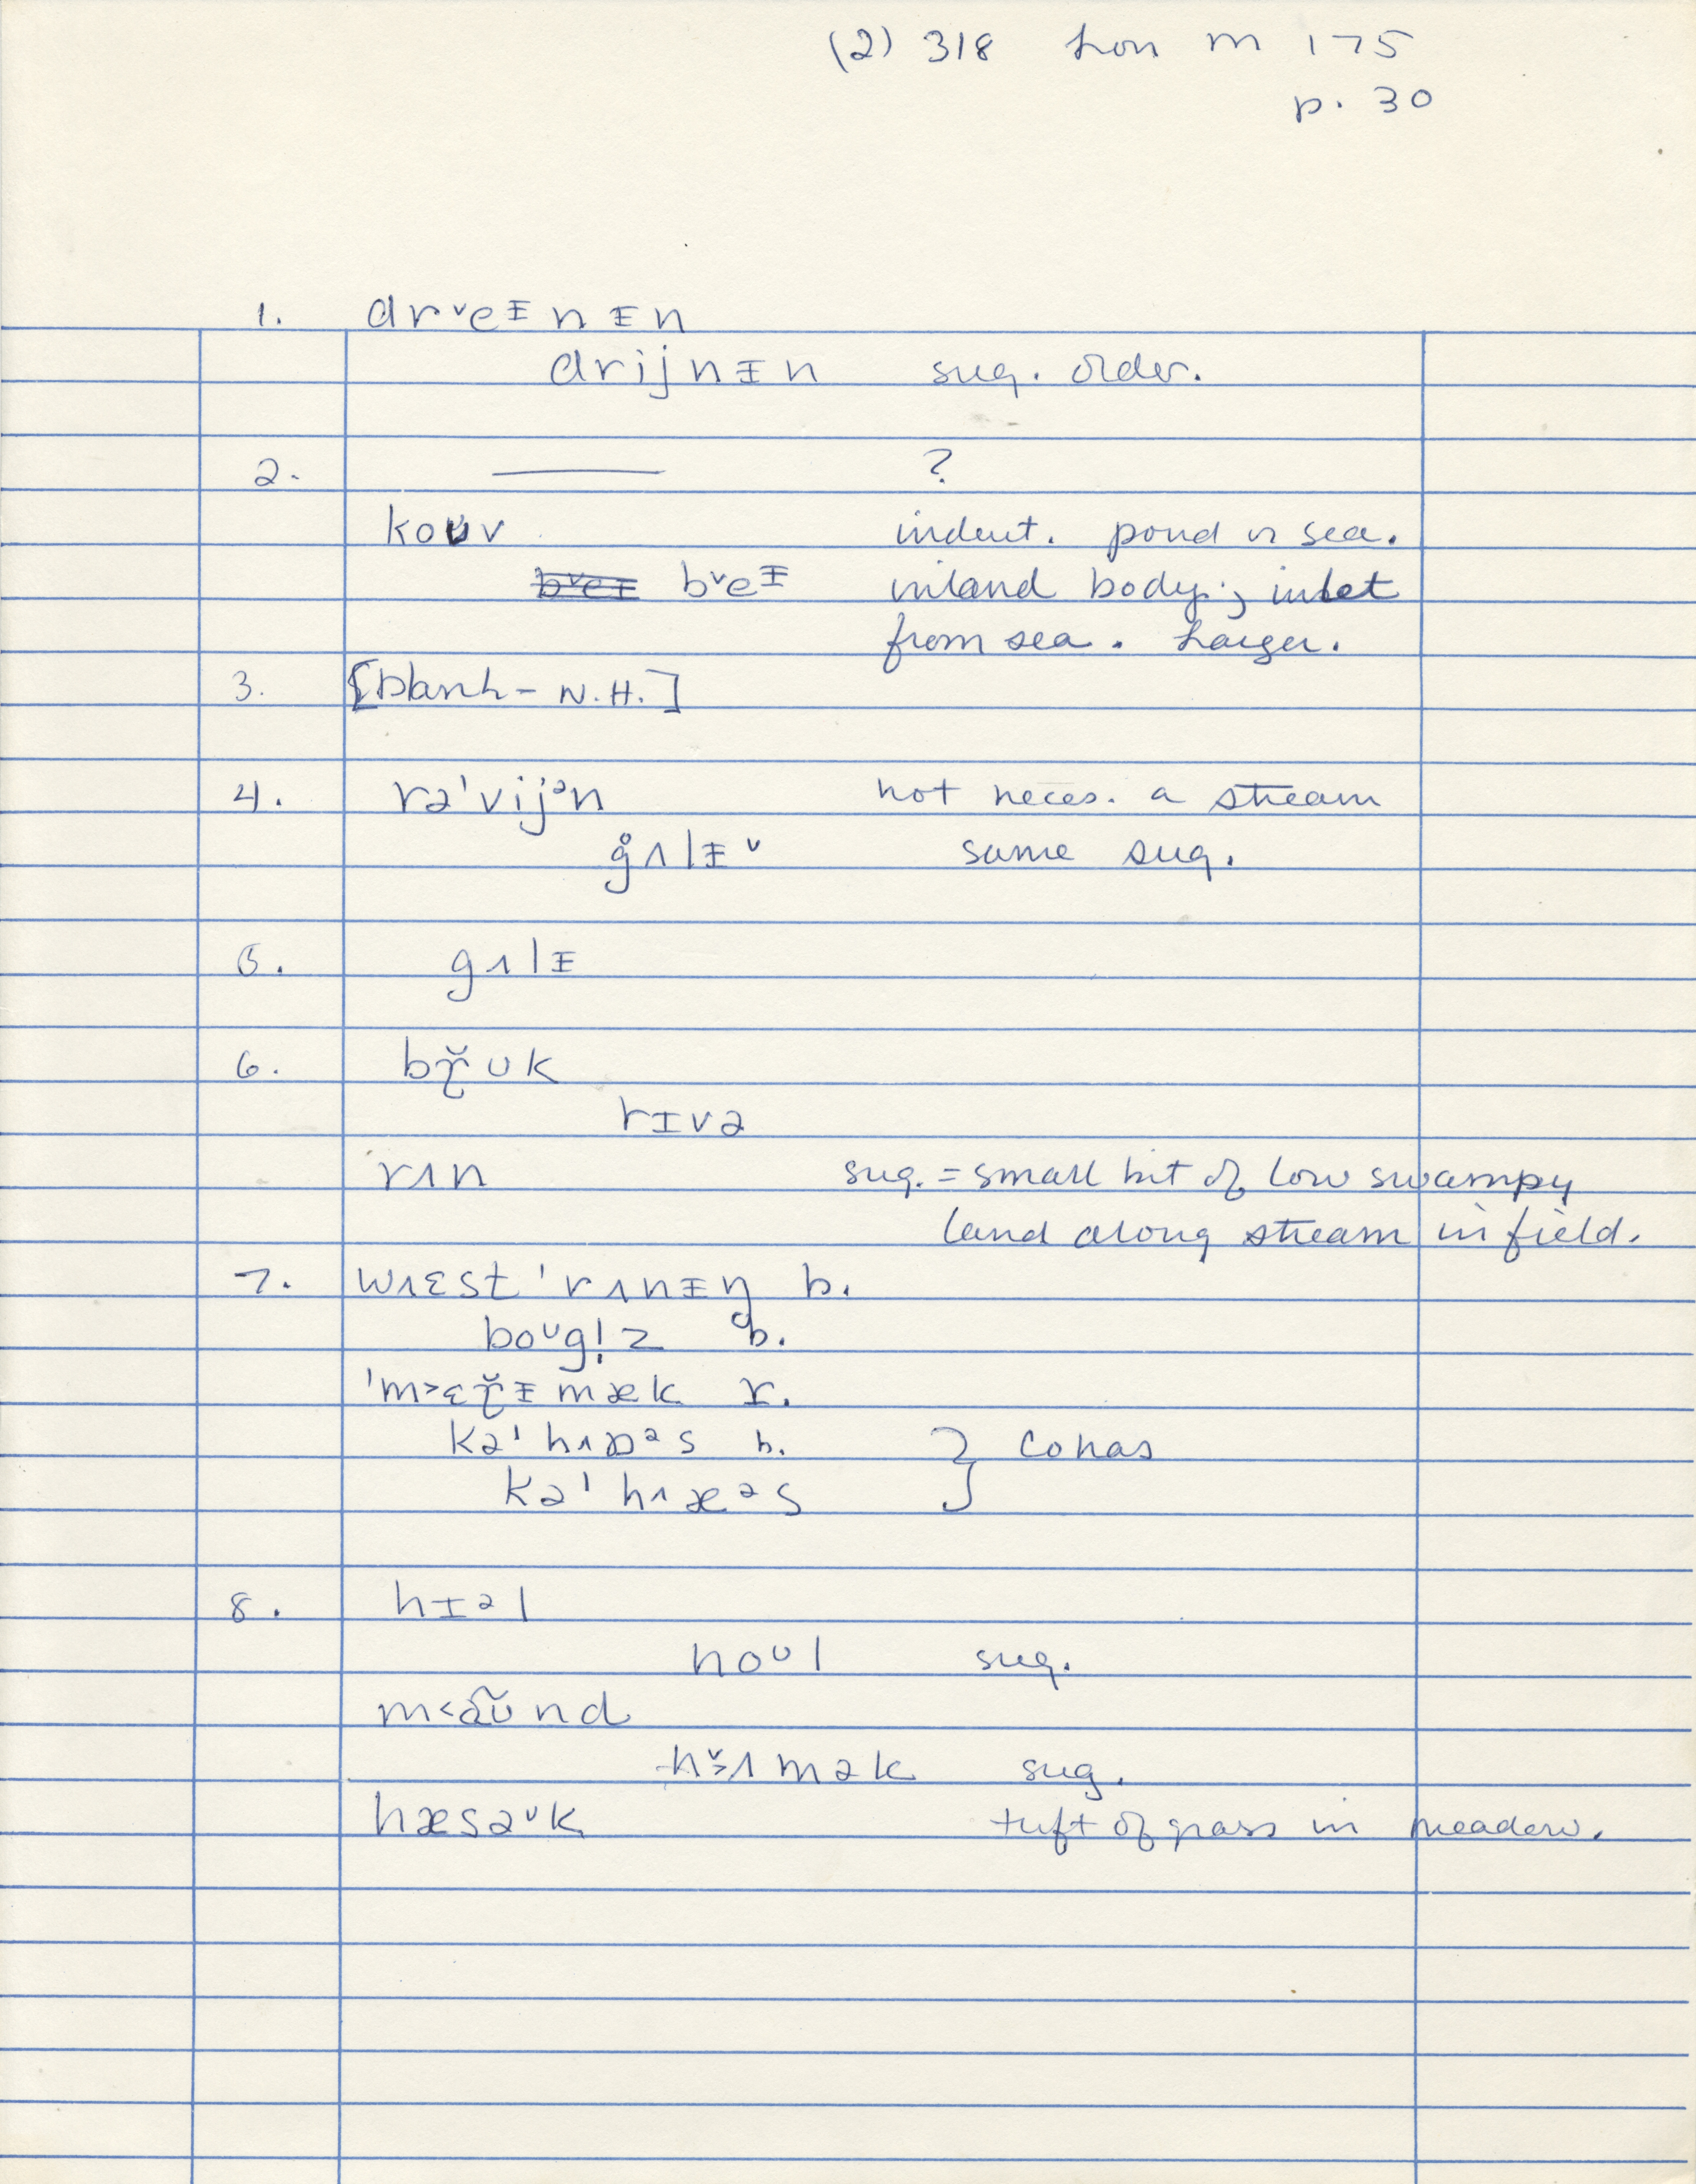 (2) 318 Lon M 175
p. 30
1. drᵛeᵻnᵻn
drijnᵻn sug. older.
2. ——— ?
koʊv indent. pond or sea.
bᵛeᵻ bᵛeᵻ inland body; inlet
from sea. Larger.
3. [blank - N.H.]
4. rə'vijᵊn not neces. a stream
g̊ʌlᵻᵛ same sug.
5. gʌlᵻ
6. bɼ̆ʊk
rɪvə
rʌn sug. = small bit of low swampy
land along stream in field.
7. wʌɛst 'rʌnᵻŋ b.
boᶷgl̩z b.
'm>ɛɼ̆ᵻmæk r.
kə'hʌɒᵊs b. } cohas
kə'hʌæᵊs
8. hɪᵊl
noᶷl sug.
m<ãʊ̃nd
hᵛ>ʌmək sug.
hæsəᶷk tuft of grass in meadow.